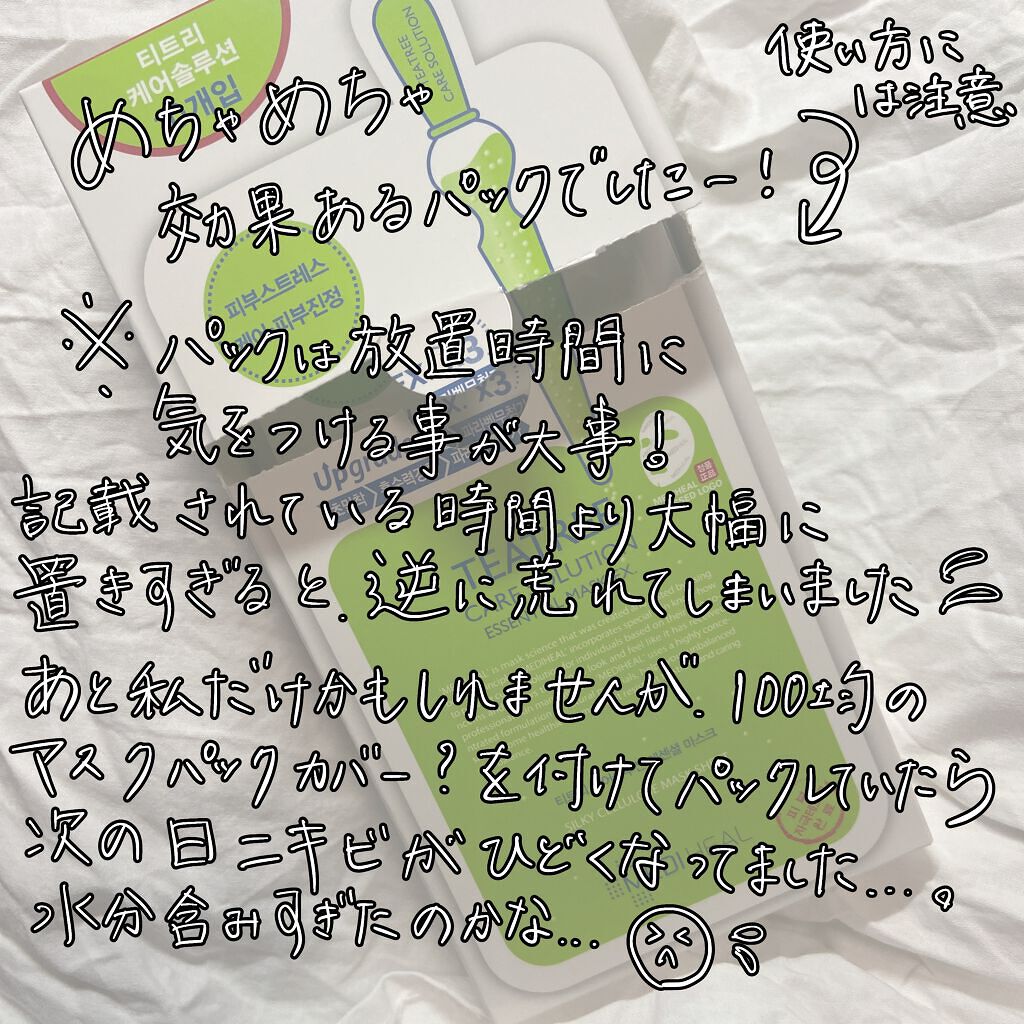 使い方に
は注意、
めちゃめちゃ
効果あるパックでしたこー!
※パックは放置時間に
気をつける事が大事!
記載されている時間より大幅に
置きすぎると、逆に荒れてしまいました
あと私だけかもしれませんが、100均の
アスクパックカバー?を付けてパックしていたら
次の日ニキビがひどくなってました...。
水分含みすぎたのかな...
티트리
케어솔루션
개입
TEATREE
CARE SOLUTION
피부스트레스
케어 피부진정
TEATREE
CARE SOLUTION
ESSENTIAL MASK EX.
SILKY CELLULOSE MASK SHEET
MEDIHEAL